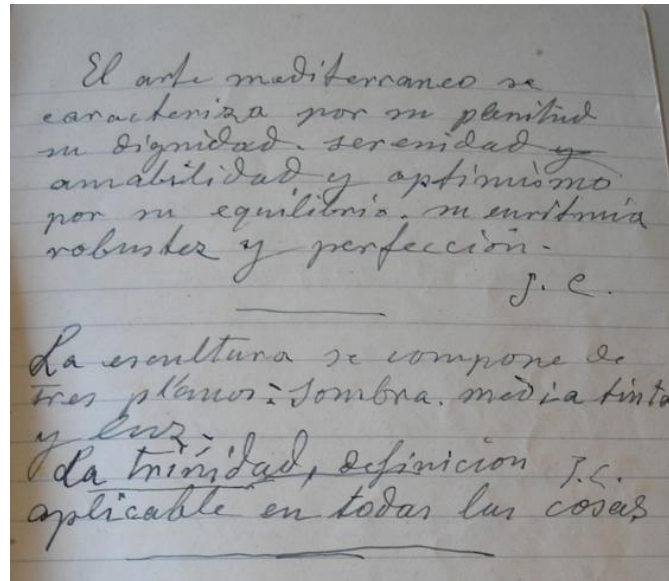 El arte mediterraneo se
caracteriza por su plenitud
su dignidad. serenidad y
amabilidad y optimismo
por su equilibrio. su euritmia
robustez y perfección.
J. C.
La escultura se compone de
tres planos: Sombra. media tinta
y luz.
La trinidad, definicion J.C.
aplicable en todas las cosas